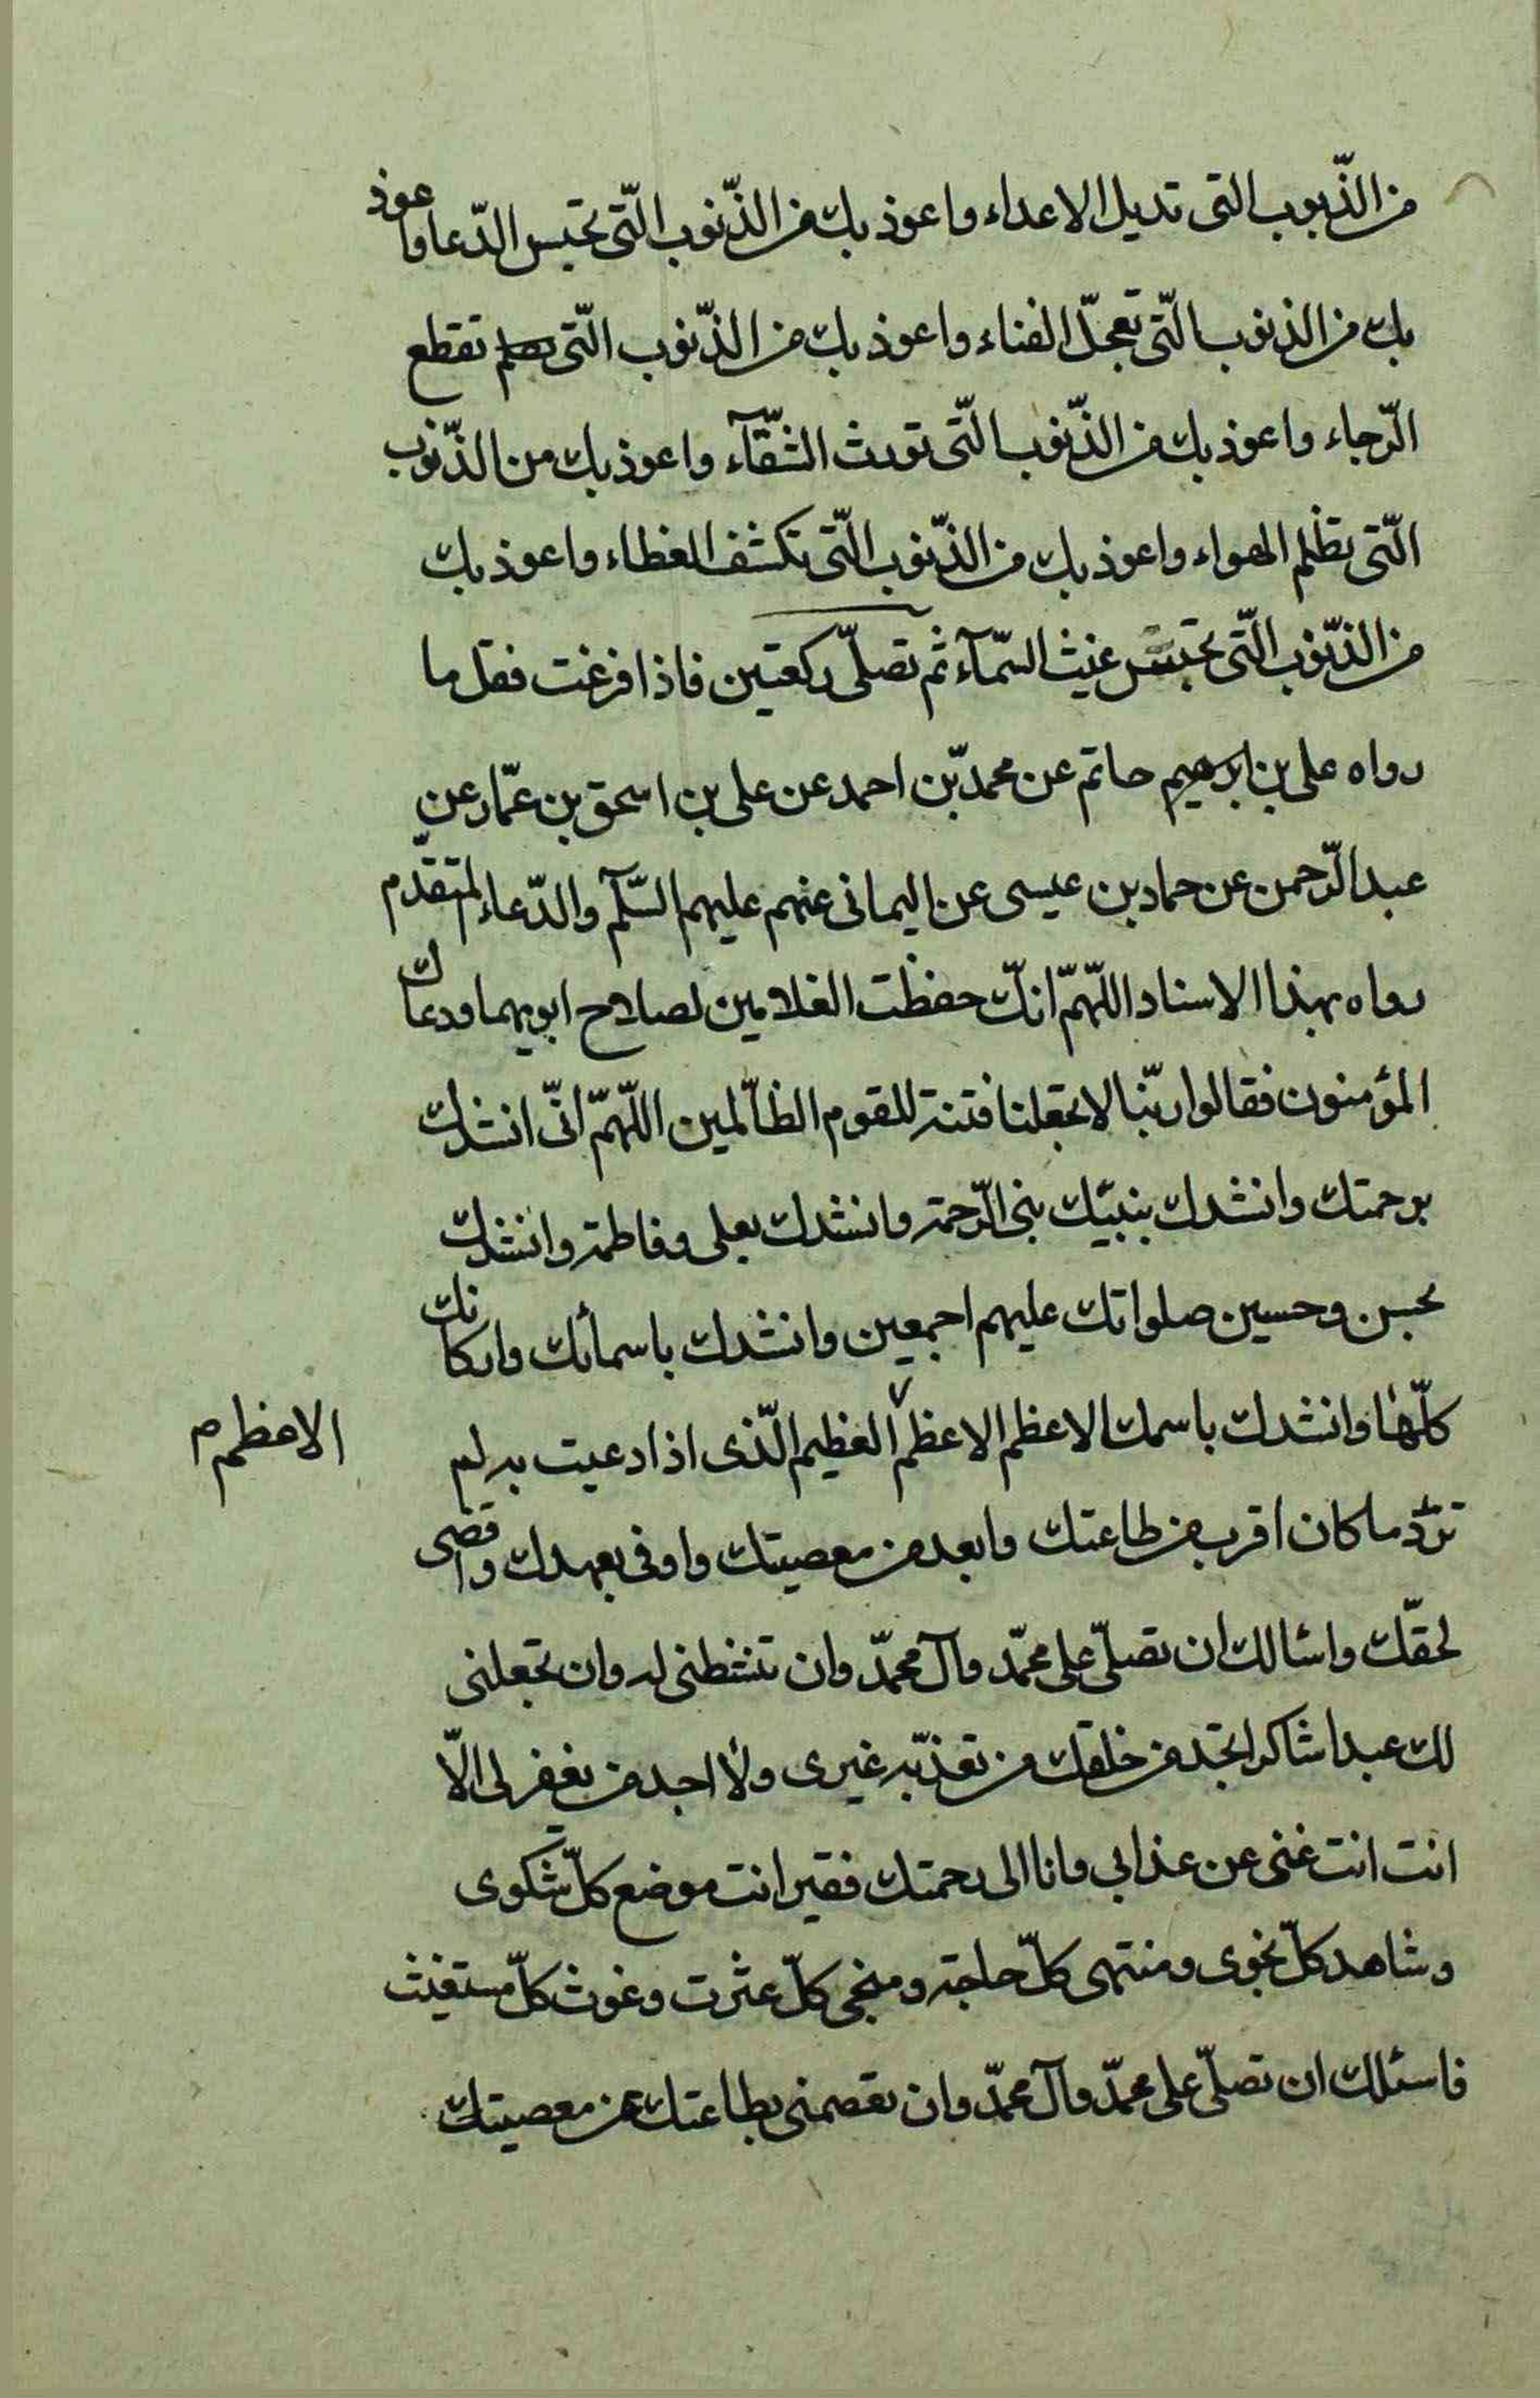 من الذّنوب التى تديل الاعداء واعوذ بك من الذّنوب الّتى تحبس الدّعا واعوذ
بك من الذنوب الّتى تعجّل الفناء واعوذ بك من الذّنوب الّتى تقطع
الرّجاء واعوذ بك من الذّنوب الّتى تورث الشّقآء واعوذ بك من الذّنوب
الّتى تظلم الهواء واعوذ بك من الذّنوب الّتى تكشف الغطاء واعوذ بك
من الذّنوب الّتى تحبس غيث السّمآء ثم تصلّى ركعتين فاذا فرغت فقل ما
رواه على بن ابرهيم حاتم عن محمّد بن احمد عن على بن اسحق بن عمّار عن
عبد الرّحمن عن حماد بن عيسى عن اليمانى عنهم عليهم السّلم والدّعاء المتقدّم
رواه بهذا الاسناد اللّهمّ انّك حفظت الغلامين لصلاح ابويهما ودعاك
المؤمنون فقالوا ربّنا لا تجعلنا فتنة للقوم الظالمين اللّهمّ انّى انشدك
برحمتك وانشدك بنبيّك نبى الرّحمة وانشدك بعلى وفاطمة وانشدك
بحسن وحسين صلواتك عليهم اجمعين وانشدك باسمائك واركانك
كلّها وانشدك باسمك الاعظم الاعظم العظيم الّذى اذا دعيت به لم
الاعظم م
تردّ ما كان اقرب من طاعتك وابعد من معصيتك واوفى بعهدك واقضى
لحقّك واسالك ان تصلّى على محمّد وآل محمّد وان تنشطنى له وان تجعلنى
لك عبدا شاكرا تجد من خلقك من تعذّبه غيرى ولا اجد من يغفر لى الّا
انت انت غنى عن عذابى وانا الى رحمتك فقير انت موضع كلّ شكوى
وشاهد كلّ نجوى ومنتهى كلّ حاجة ومنجى كلّ عثرت وغوث كلّ مستغيث
فاسئلك ان تصلّى على محمّد وآل محمّد وان تعصمنى بطاعتك عن معصيتك